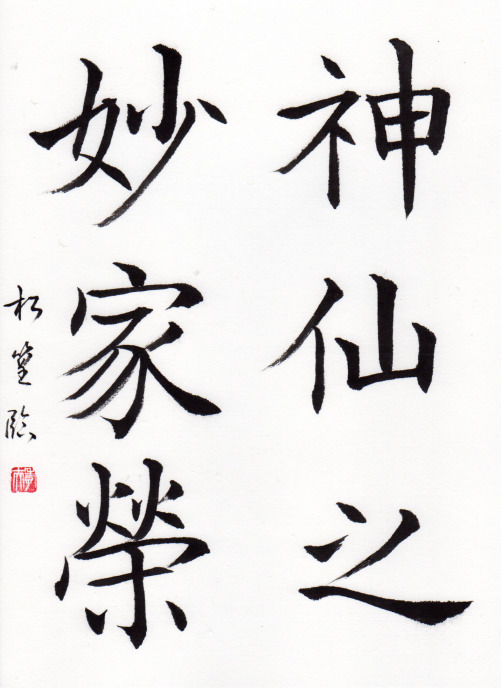 神仙之
妙家榮
松篁臨